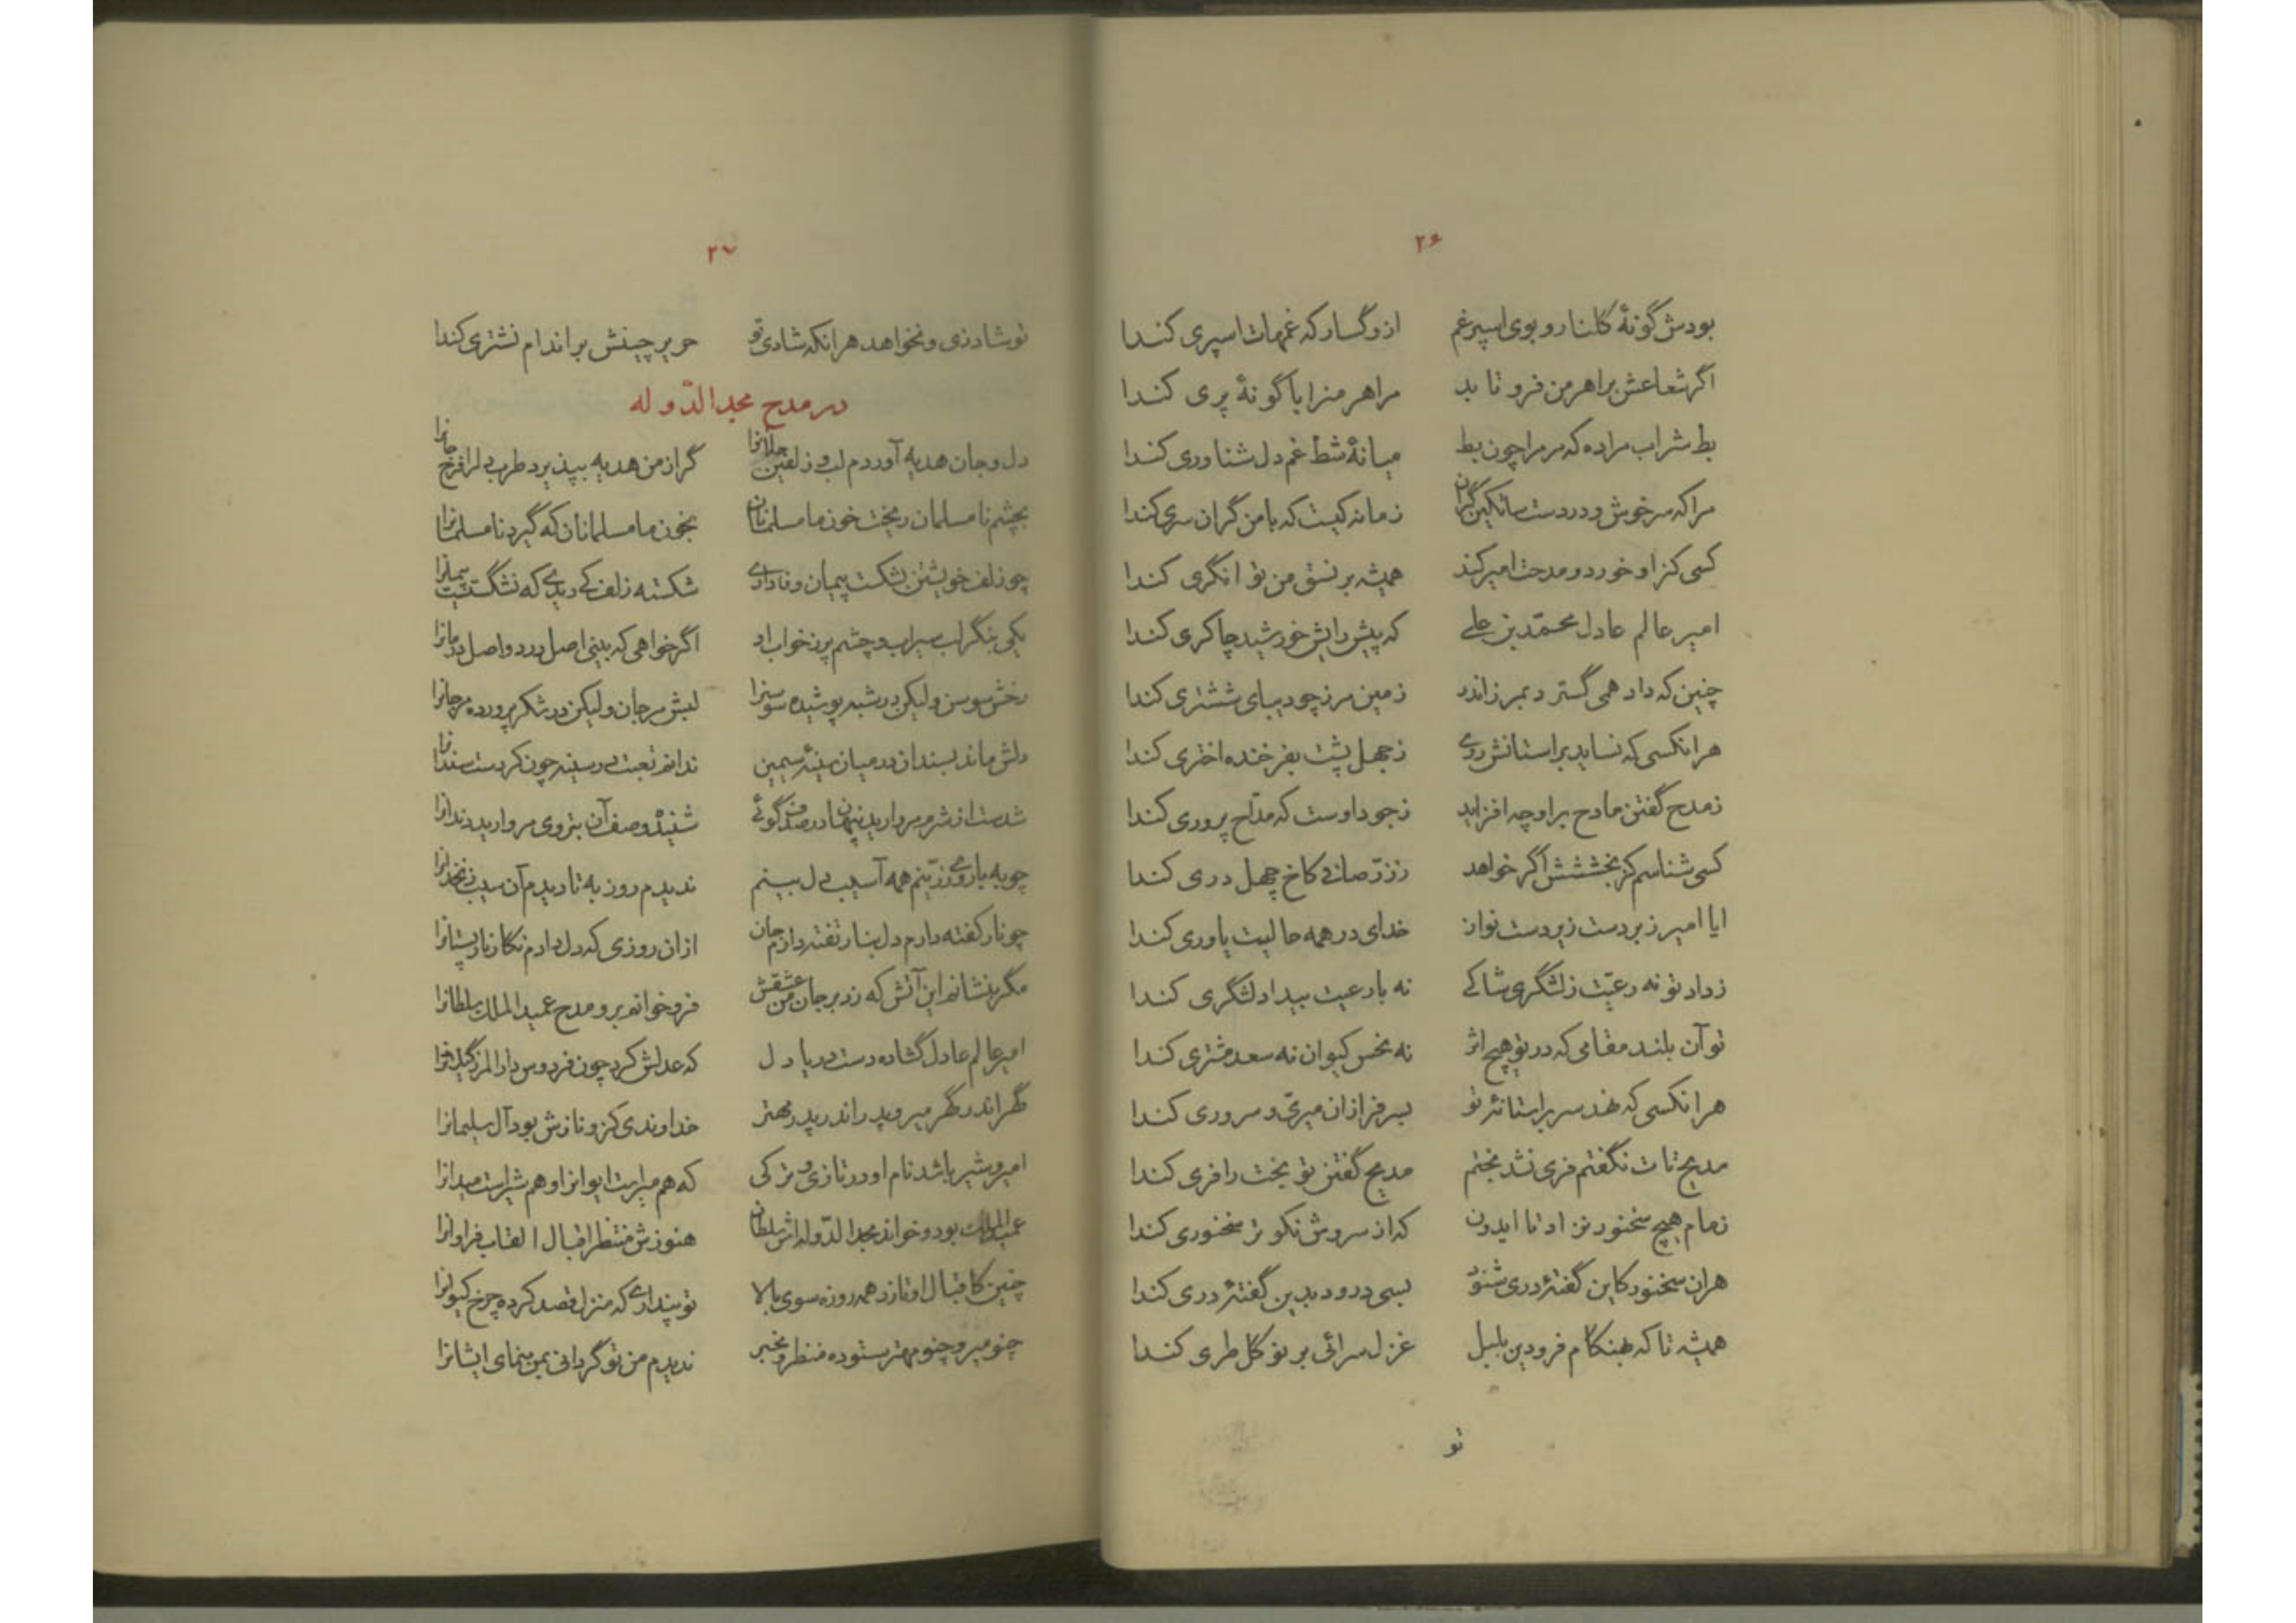 ۲۶
بودش گونهٔ گلنار و بوی اسپرغم ازو گسار که غمهات اسپری کندا
اگر شعاعش بر اهرمن فرو تابد مر اهرمن را با گونهٔ پری کندا
بط شراب مرا ده که مر مرا چون بط میانهٔ شط غم دل شناوری کندا
مرا که سرخوش و در دست ساتکین گران زمانه کیست که با من گران سری کندا
کسی کز او خورد و مدحت امیر کند همیشه بر نسق من توانگری کندا
امیر عالم عادل محمّد بن علی که پیش رایش خورشید چاکری کندا
چنین که داد همی گسترد بمرز اندر زمین مرز چو دیبای ششتری کندا
هر انکسی که نساید بر استانش روی ز جهل پشت بفرخنده اختری کندا
ز مدح گفتن مادح بر او چه افزاید ز جود اوست که مدّاح پروری کندا
کسی شناسم کز بخششش اگر خواهد ز زرّ صافی کاخ چهل دری کندا
ایا امیر زبردست زیردست نواز خدای در همه حالیت یاوری کندا
ز داد تو نه رعیّت ز لشگری شاکی نه با رعیت بیداد لشگری کندا
تو آن بلند مقامی که در تو هیچ اثر نه نحس کیوان نه سعد مشتری کندا
هر انکسی که نهد سر بر استانهٔ تو بسرفرازان میری و سروری کندا
مدیح تات نگفتم فری نشد بختم مدیح گفتن تو بخت را فری کندا
ز مام هیچ سخنور نزاد تا ایدون که از سروش نکوتر سخنوری کندا
هر ان سخنور کاین گفتهٔ دری شنود بسی درود بدین گفتهٔ دری کندا
همیشه تا که بهنگام فرودین بلبل غزل سرائی بر نو گل طری کندا
تو
۲۷
تو شاد زی و نخواهد هر انکه شادی تو حریر چینش بر اندام نشتری کندا
در مدح مجد الدّوله
دل و جان هدیه آوردم لب و زلفین جانانرا گر از من هدیه بپذیرد طرب دلرا فرح جانرا
بچشم نامسلمان ریخت خون ما مسلمانان بخون ما مسلمانان که گیرد نامسلمانرا
چو زلف خویشتن بشکست پیمان وفاداری شکسته زلف کی دیدی که نشگسته است پیمانرا
یکی بنگر لب سیراب و چشم پر ز خواب او اگر خواهی که بینی اصل درد و اصل درمانرا
رخش سوسن ولیکن در شبه پوشیده سوسنرا لبش مرجان ولیکن در شکر پرورده مرجانرا
دلش ماند بسندان در میان سینهٔ سیمین ندانم تعبیت در سینه چون کردست سندانرا
شدست از شرم مروارید پنهان در صدف گوئی شنیده وصف آن بتروی مروارید دندانرا
چو به با روی زرّینم همه آسیب دل بینم ندیدم روز به تا دیدم آن سیب زنخدانرا
چو نار کفته دارم دل بنار تفته دارم جان ازان روزی که دل دادم نگار نار پستانرا
مگر بنشانم این آتش که زد بر جان من عشقش فرو خوانم برو مدح عمید الملک سلطانرا
امیر عالم عادل گشاده دست دریا دل که عدلش کرد چون فردوس دار المرز گیلانرا
گهر اندر گهر میر و پدر اندر پدر مهتر خداوندی کزو نازش بود آل سلیمانرا
امیر و شیر باشد نام او در تازی و ترکی که هم میرست ایوانرا و هم شیرست میدانرا
عمید الملک بود و خواند مجد الدّوله اش سلطان هنوزش منتظر اقبال القاب فراوانرا
چنین کاقبال او تازد همه روزه سوی بالا تو پنداری که منزل قصد کرده چرخ کیوانرا
چنو میر و چنو مهتر ستوده منظر و مخبر ندیدم من تو گر دانی بمن بنمای ایشانرا